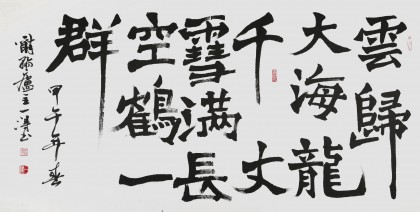 雲歸
大海龍
千丈
雪滿長
空鶴一
群
甲午年春